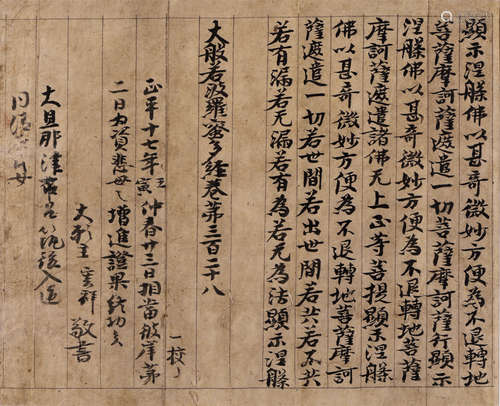 顯示涅槃佛以甚奇微妙方便為不退轉地
菩薩摩訶薩遮遣一切菩薩摩訶薩行顯示
涅槃佛以甚奇微妙方便為不退轉地菩薩
摩訶薩遮遣諸佛无上正等菩提顯示涅槃
佛以甚奇微妙方便為不退轉地菩薩摩訶
薩遮遣一切若世間若出世間若共若不共
若有漏若无漏若有為若无為法顯示涅槃
大般若波羅蜜多經卷第三百二十八
一校了
正平十七年壬寅仲春廿三日相當彼岸第
二日為資悲母之增進證果終功矣
大願主 敬書
大旦那津